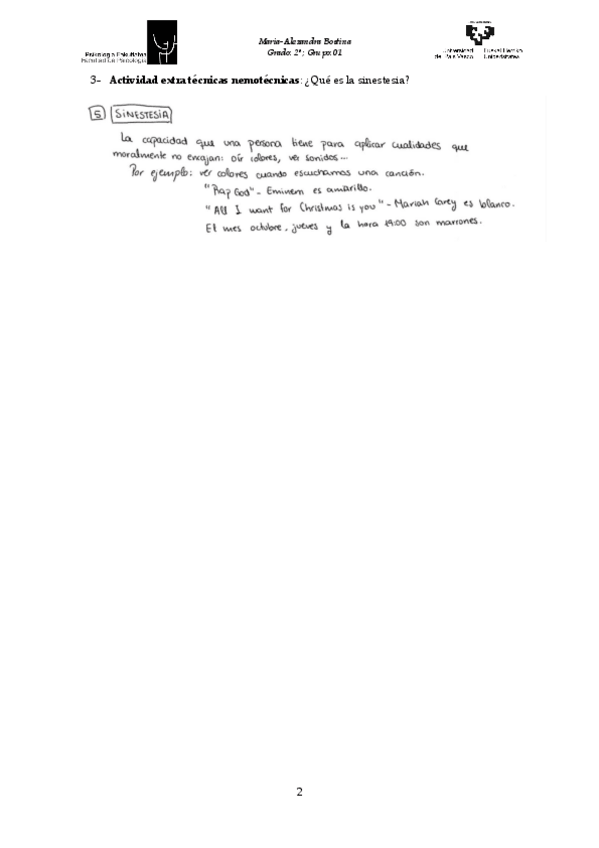 Psikologia Fakultatea
Facultad de Psicología
Maria-Alexandra Bostina
Grado: 2º; Grupo: 01
Universidad del País Vasco
Euskal Herriko Unibertsitatea
3- Actividad extra técnicas nemotécnicas: ¿Qué es la sinestesia?
5 SINESTESIA
La capacidad que una persona tiene para aplicar cualidades que
moralmente no encajan: oír colores, ver sonidos...
Por ejemplo: ver colores cuando escuchamos una canción.
"Rap God" - Eminem es amarillo.
"All I want for Christmas is you" - Mariah Carey es blanco.
El mes octubre, jueves y la hora 19:00 son marrones.
2